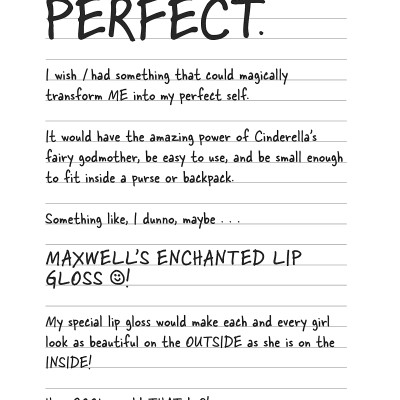 PERFECT.
I wish I had something that could magically
transform ME into my perfect self.
It would have the amazing power of Cinderella's
fairy godmother, be easy to use, and be small enough
to fit inside a purse or backpack.
Something like, I dunno, maybe . . .
MAXWELL'S ENCHANTED LIP
GLOSS ☺!
My special lip gloss would make each and every girl
look as beautiful on the OUTSIDE as she is on the
INSIDE!